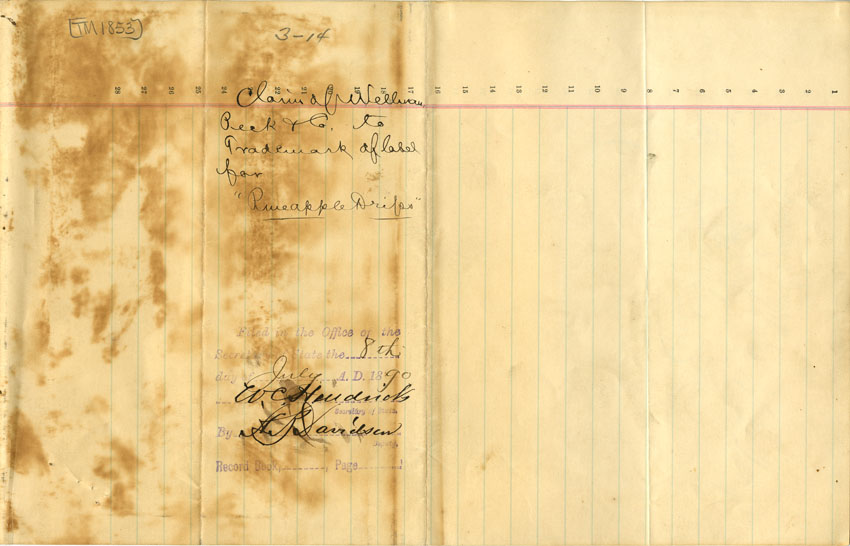 [TM 1853]
3-14
28 27 26 25 24 23 22 21 20 19 18 17 16 15 14 13 12 11 10 9 8 7 6 5 4 3 2 1
Claim of Wellman
Peck & Co. to
Trademark of label
for
"Pineapple Drips"
Filed in the Office of the
Secretary of State the 8th
day July A. D. 1890
W C Hendricks
Secretary of State.
By Davidson
Deputy.
Record Book, , Page